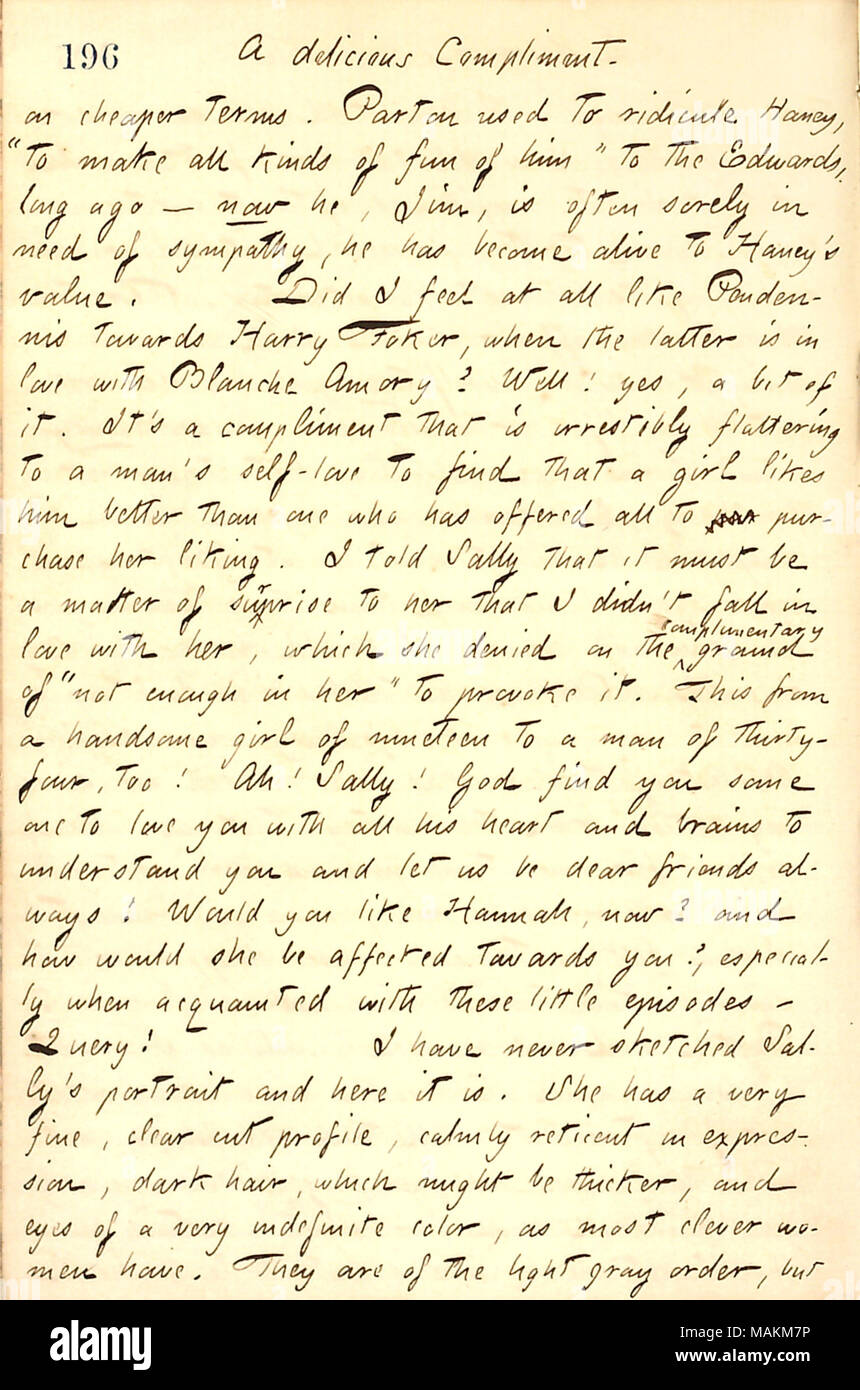 196 A delicious Compliment.
on cheaper terms. Parton used to ridicule Haney,
"to make all kinds of fun of him" to the Edwards,
long ago — now he, Jim, is often sorely in
need of sympathy, he has become alive to Haney's
value. Did I feel at all like Penden-
nis towards Harry Foker, when the latter is in
love with Blanche Amory? Well! yes, a bit of
it. It's a compliment that is irrestibly flattering
to a man's self-love to find that a girl likes
him better than one who has offered all to pur-
chase her liking. I told Sally that it must be
a matter of surprise to her that I didn't fall in
love with her, which she denied on the complimentary ground
of "not enough in her" to provoke it. This from
a handsome girl of nineteen to a man of thirty-
four, too! Ah! Sally! God find you some
one to love you with all his heart and brains to
understand you and let us be dear friends al-
ways! Would you like Hannah, now? and
how would she be affected towards you?, especial-
ly when acquainted with these little episodes —
Query! I have never sketched Sal-
ly's portrait and here it is. She has a very
fine, clear cut profile, calmly reticent in expres-
sion, dark hair, which might be thicker, and
eyes of a very indefinite color, as most clever wo-
men have. They are of the light gray order, but
alamy
Image ID: MAKM7P
www.alamy.com